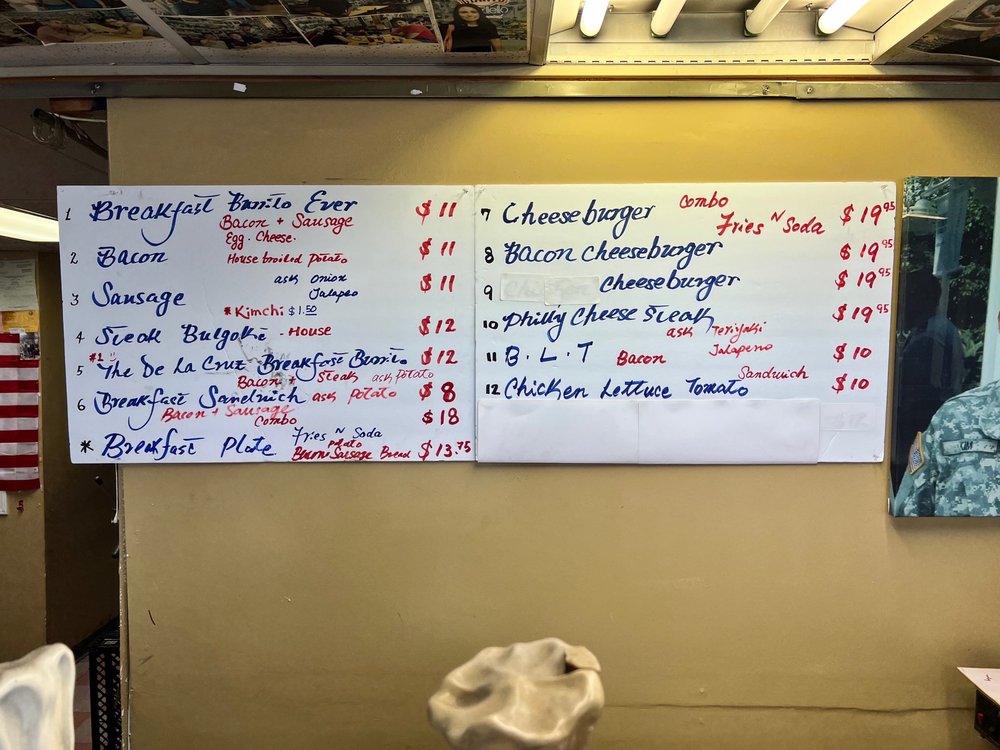 1 Breakfast Burrito Ever $11
Bacon + Sausage
Egg. Cheese.
2 Bacon House broiled Potato $11
ask onion
3 Sausage Jalapeo $11
* Kimchi $1.50
4 Steak Bulgoki - House $12
#1 !!
5 The De La Cruz Breakfast Burrito $12
Bacon + Steak ask potato
6 Breakfast Sandwich ask Potato $8
Bacon + Sausage
Combo $18
Fries N Soda
* Breakfast Plate Potato $13.75
Bacon Sausage Bread
7 Cheeseburger Combo $19.95
Fries N Soda
8 Bacon Cheeseburger $19.95
9 Cheeseburger $19.95
10 Philly Cheese Steak $19.95
ask Teriyaki
Jalapeno
11 B.L.T Bacon $10
Sandwich
12 Chicken Lettuce Tomato $10